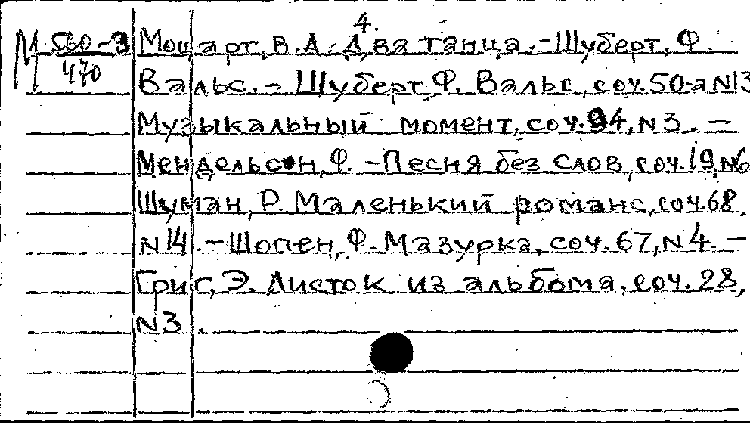 4.
М 560-3 Моцарт, В.А. Два танца. - Шуберт, Ф.
470 Вальс. - Шуберт, Ф. Вальс, соч. 50-а N13
Музыкальный момент, соч. 94, N3. -
Мендельсон, Ф. - Песня без слов, соч. 19, N6
Шуман, Р. Маленький романс, соч. 68,
N14. - Шопен, Ф. Мазурка, соч. 67, N4. -
Григ, Э. Листок из альбома, соч. 28,
N3.